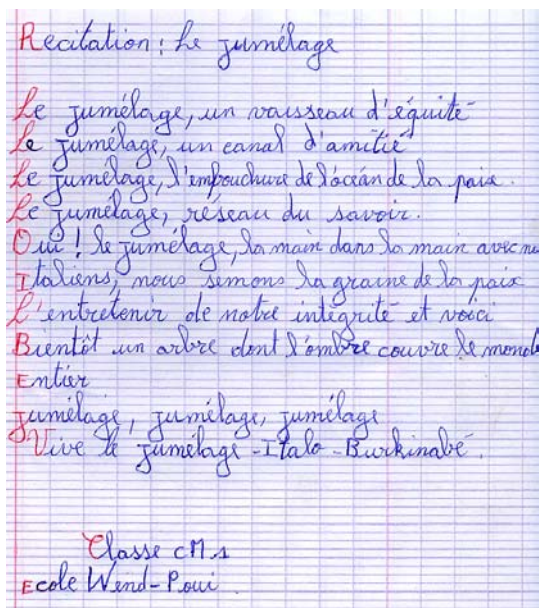 Recitation : Le jumélage
Le jumélage, un vaisseau d'équité
Le jumélage, un canal d'amitié
Le jumélage, l'embouchure de l'océan de la paix.
Le jumélage, réseau du savoir.
Oui ! le jumélage, la main dans la main avec
Italiens, nous semons la graine de la paix
L'entretenir de notre intégrité et voici
Bientôt un arbre dont l'ombre couvre le monde
Entier
jumélage, jumélage, jumélage
Vive le jumélage - Italo - Burkinabé.
Classe CM1
Ecole Wend-Poui